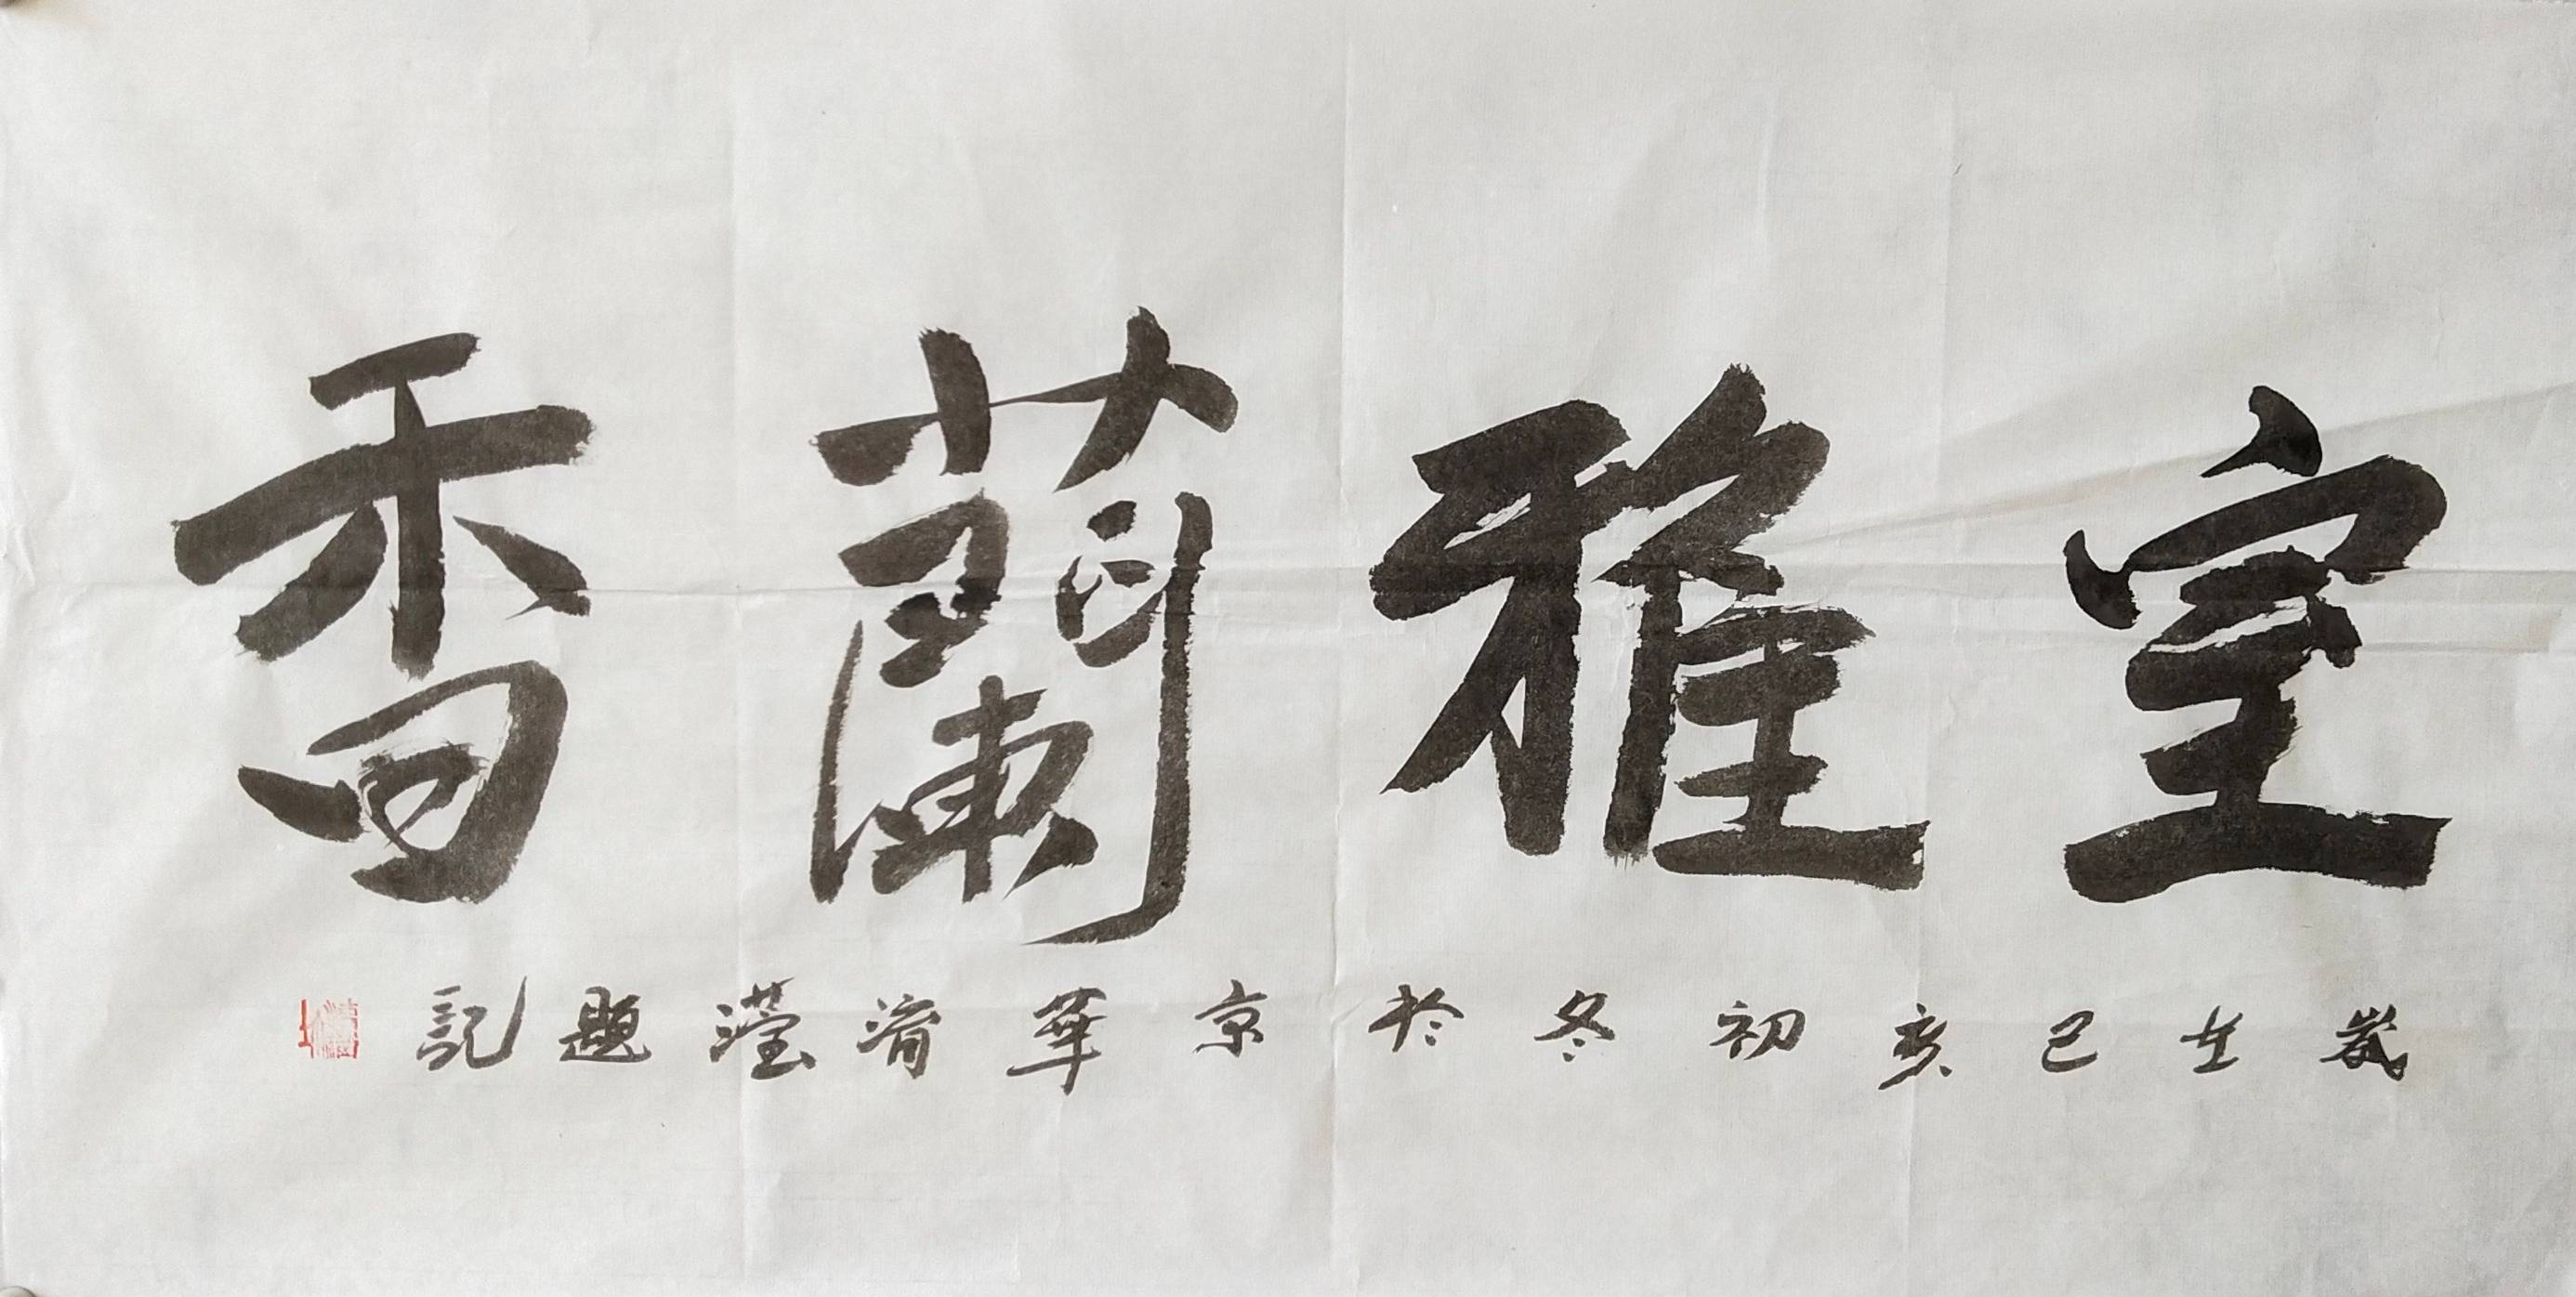 室雅蘭香
歲在己亥初冬於京華淯瀅題記